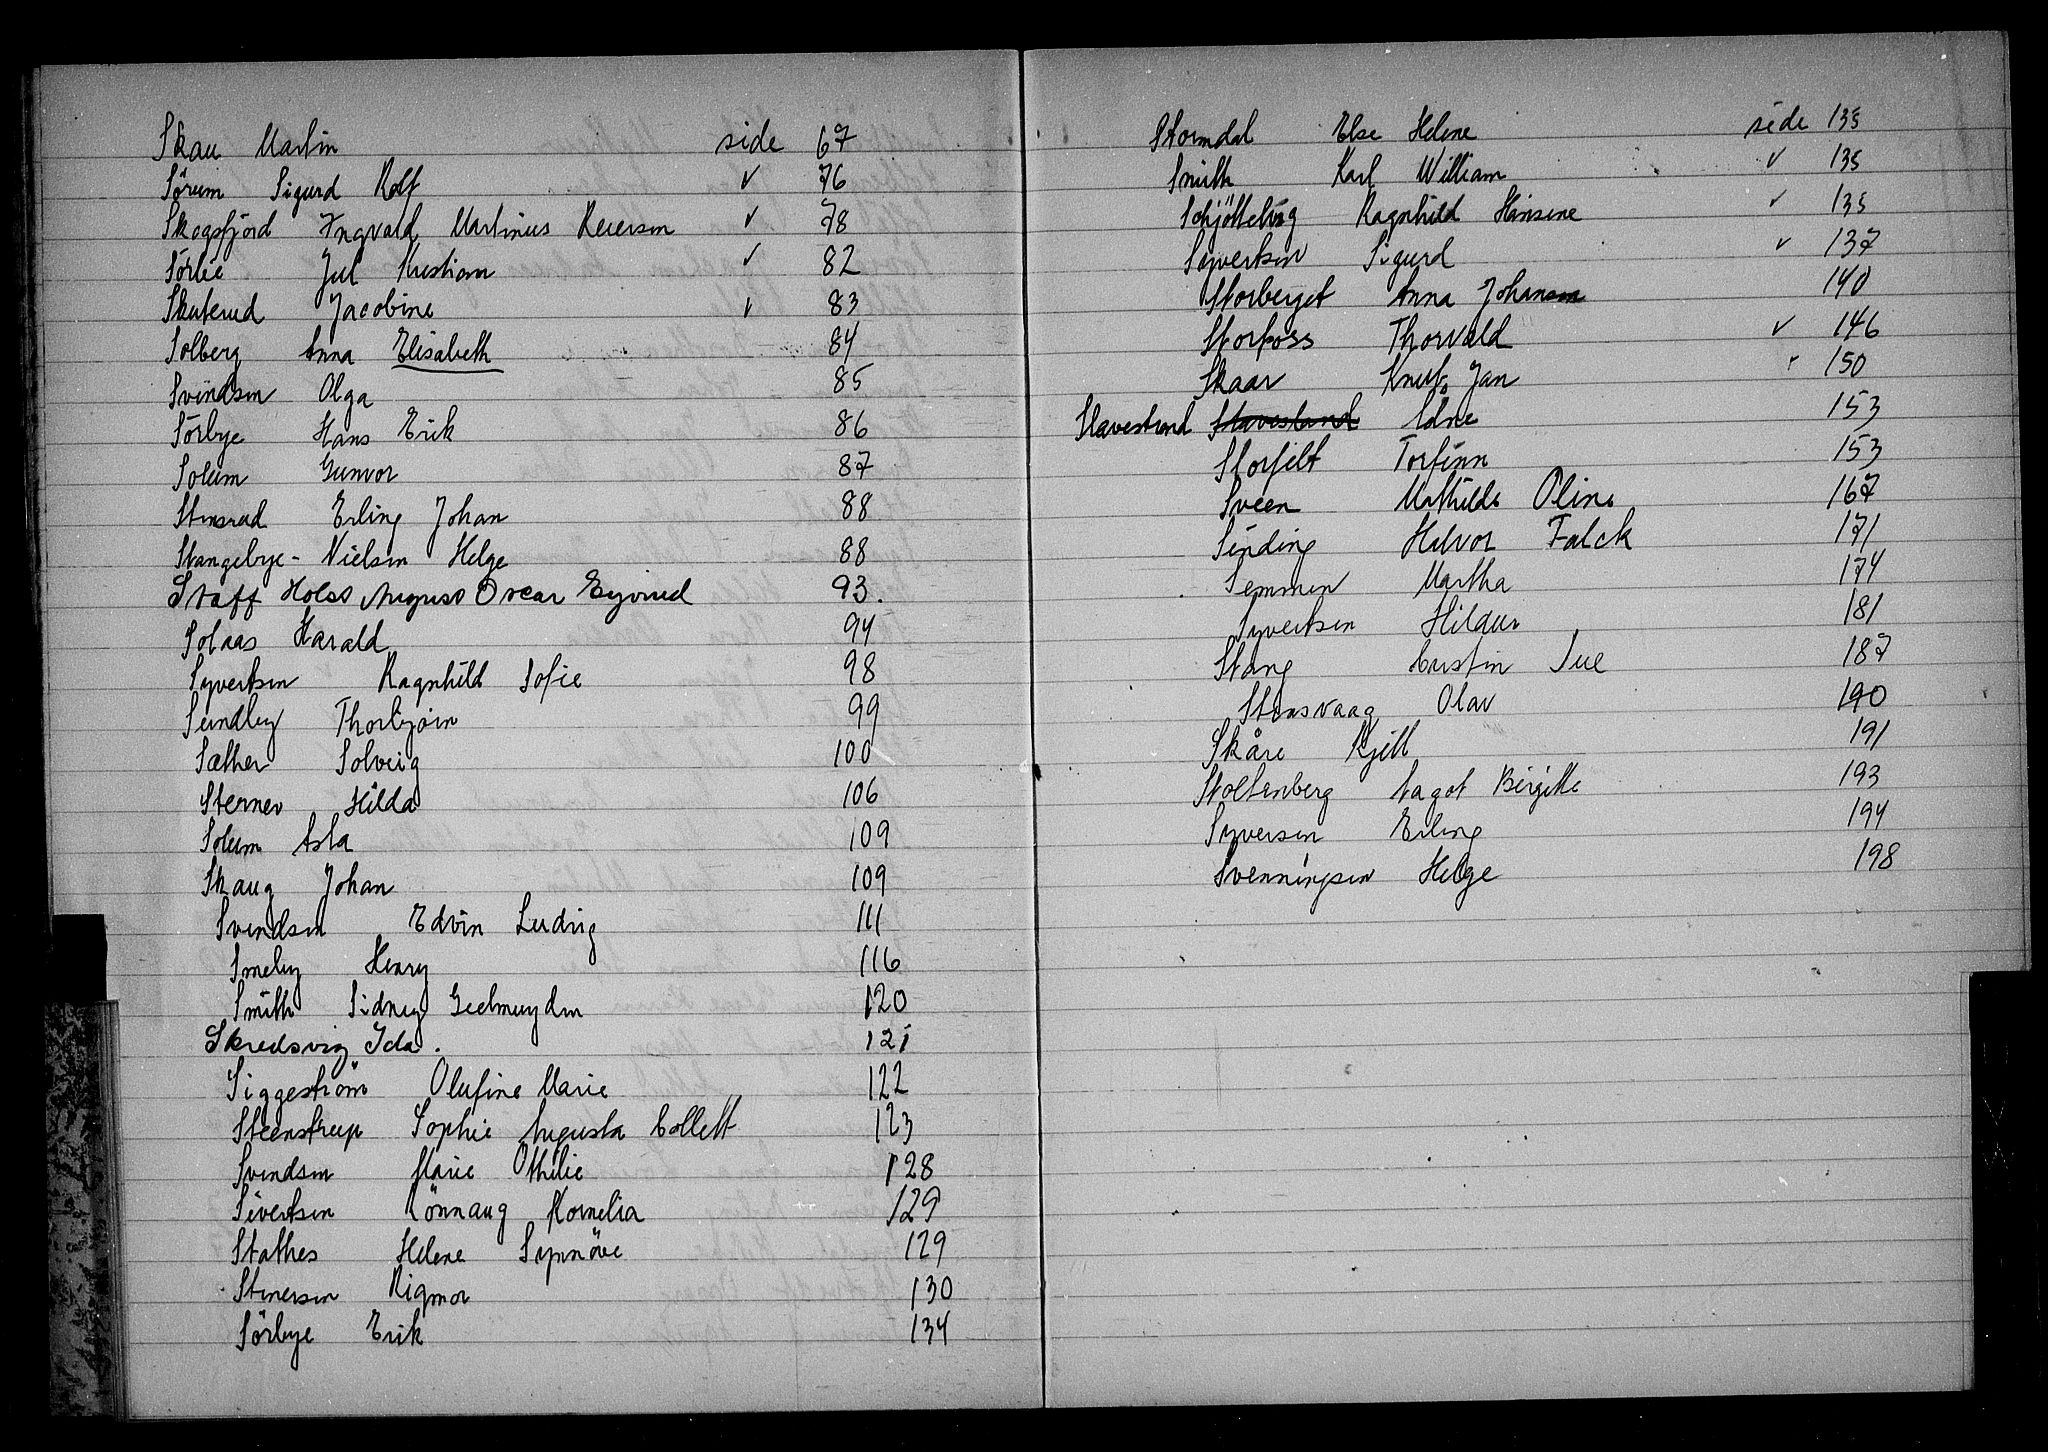 Skau Martin side 67
Sörum Sigurd Rolf ✓ 76
Skogsfjord Ingvald Martinus Reierson ✓ 78
Sörlie Jul Kristian ✓ 82
Skuterud Jacobine ✓ 83
Solberg Anna Elisabeth 84
Svendsen Olga 85
Sörbye Hans Erik 86
Solum Gunvor 87
Stensrud Erling Johan 88
Stangebye-Nielsen Helge 88
Staff Holst August Oscar Eyvind 93.
Solaas Harald 94
Syvertsen Ragnhild Sofie 98
Sundby Thorbjörn 99
Sæther Solveig 100
Sterner Hilda 106
Solum Asta 109
Skaug Johan 109
Svendsen Edvin Ludvig 111
Smeby Henry 116
Smith Sidney Geelmuyden 120
Skredsvig Ida. 121
Siggeström Olufine Marie 122
Steenstrup Sophie Augusta Collett 123
Svendsen Marie Othilie 128
Sivertsen Rönnaug Kornelia 129
Stathes Helene Synnöve 129
Stenersen Rigmor 130
Sörbye Erik 134
Storndal Else Helene side 135
Smith Karl William ✓ 135
Schjötteberg Ragnhild Hansine ✓ 135
Syvertsen Sigurd ✓ 137
Storberget Anna Johansen 140
Storfoss Thorvald ✓ 146
Skaar Knut Jan 150
Stavestrand Stavesland Edne 153
Storfelt Torfinn 153
Sveen Mathilde Oline 167
Sinding Halvor Falck 171
Semmen Martha 174
Syvertsen Hildur 181
Stang Custin Jul 187
Stensvaag Olav 190
Skåre Kjell 191
Stoltenberg Dagot Birgitte 193
Syversen Erling 194
Svenningsen Helge 198